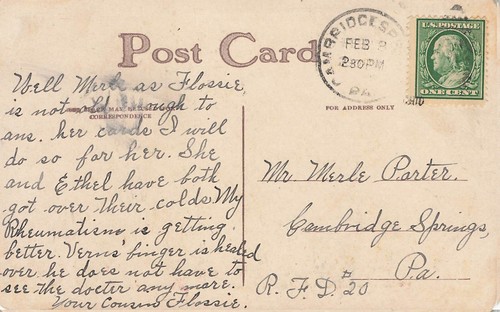 Post Card
CAMBRIDGE SP
FEB
2 30 PM
PA.
U.S. POSTAGE
ONE CENT
CORRESPONDENCE
FOR ADDRESS ONLY
Well Merle as Flossie,
is not old enough to
ans. her cards I will
do so for her. She
and Ethel have both
got over their colds My
Rheumatism is getting
better. Verns' finger is healed
over he does not have to
see the docter any more.
Your Cousin Flossie.
Mr Merle Porter.
Cambridge Springs,
Pa.
R.F.D. # 20